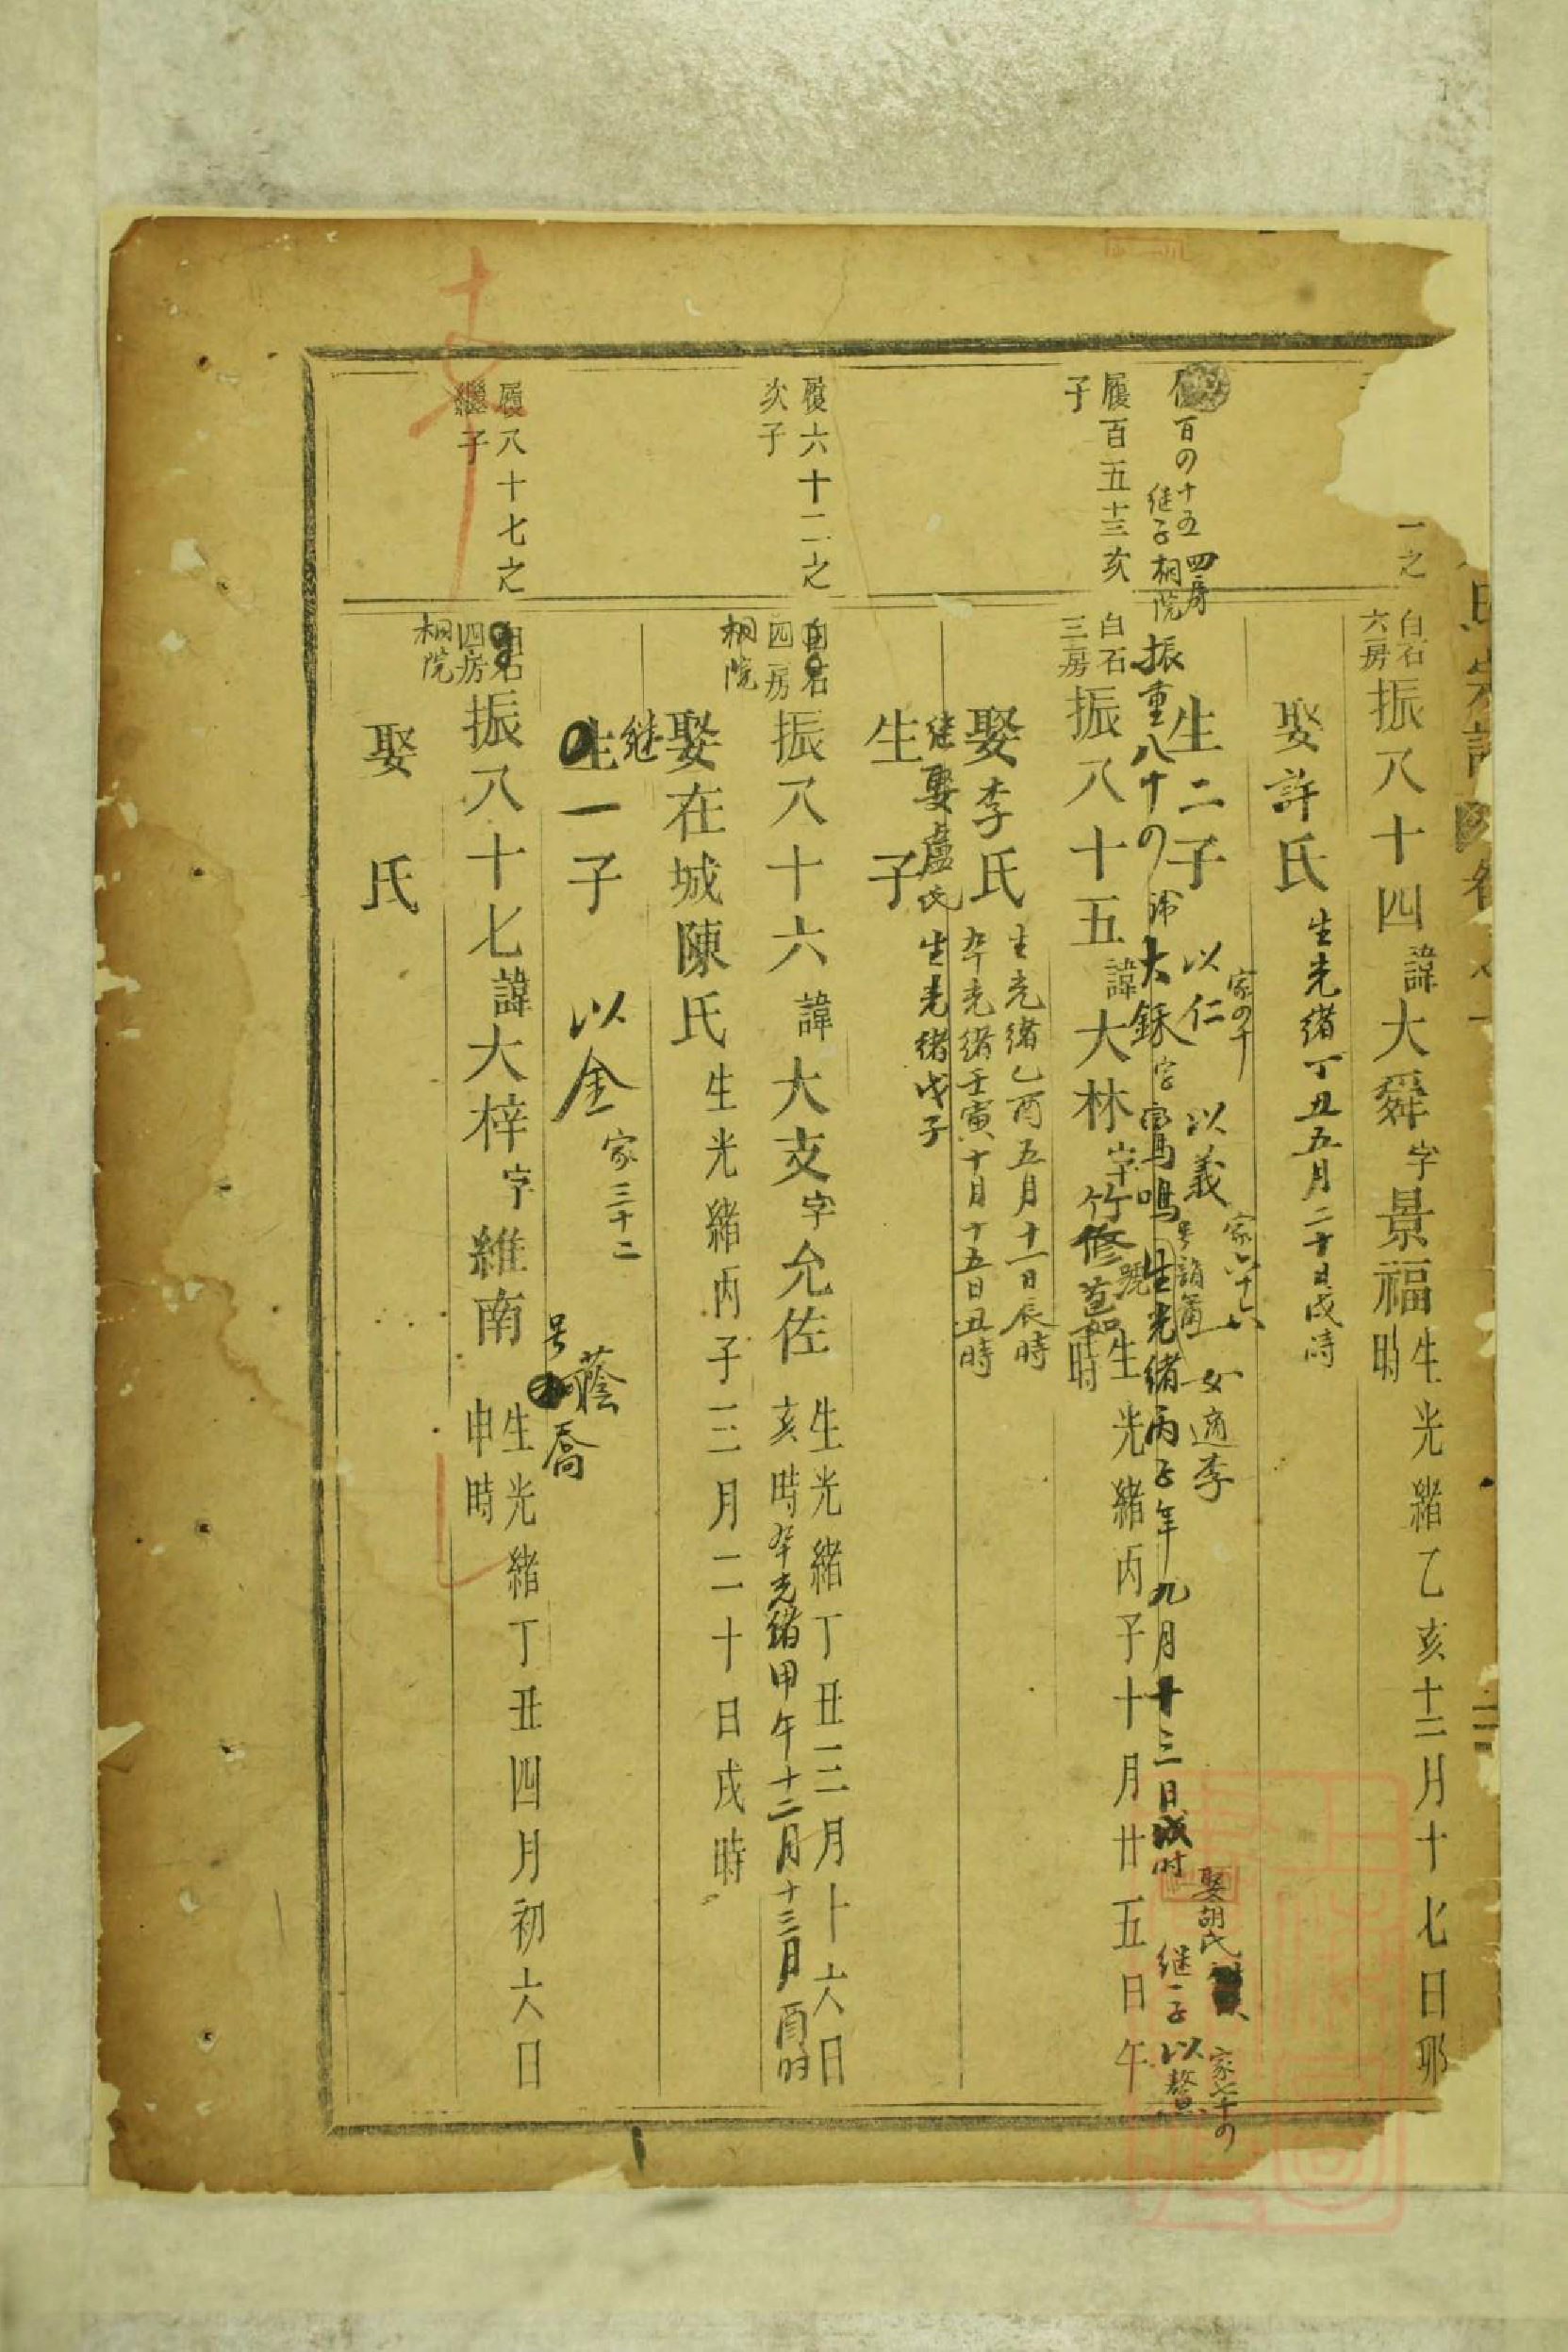 一之
白石
六房
振八十四諱大舜字景福
生光緒乙亥十二月十七日卯
時
娶許氏
生光緒丁丑五月二十日戌時
生二子
以仁
家の十
以義
家六十六
一女適李
百の十五
継子
四房
桐院
振重八十の
諱大銶字寓鳴
生光緒丙子年九月十三日戌时
娶胡氏
継一子以鰲
家七十の
履百五十三次
子
白石
三房
振八十五諱大林字竹修號
生光緒丙子十月廿五日午
時
娶李氏
生光緒乙酉五月十一日辰時
卒光緒壬寅十月十五日丑時
継娶盧氏生光緒戊子
生子
履六十二之
次子
白石
四房
桐院
振八十六諱大支字允佐
生光緒丁丑三月十六日
亥時卒光緒甲午十二月十三月酉时
娶在城陳氏生光緒丙子三月二十日戌時
継
生一子以金
家三十二
号蔭喬
履八十七之
繼子
白石
四房
桐院
振八十七諱大梓字維南
生光緒丁丑四月初六日
申時
娶氏